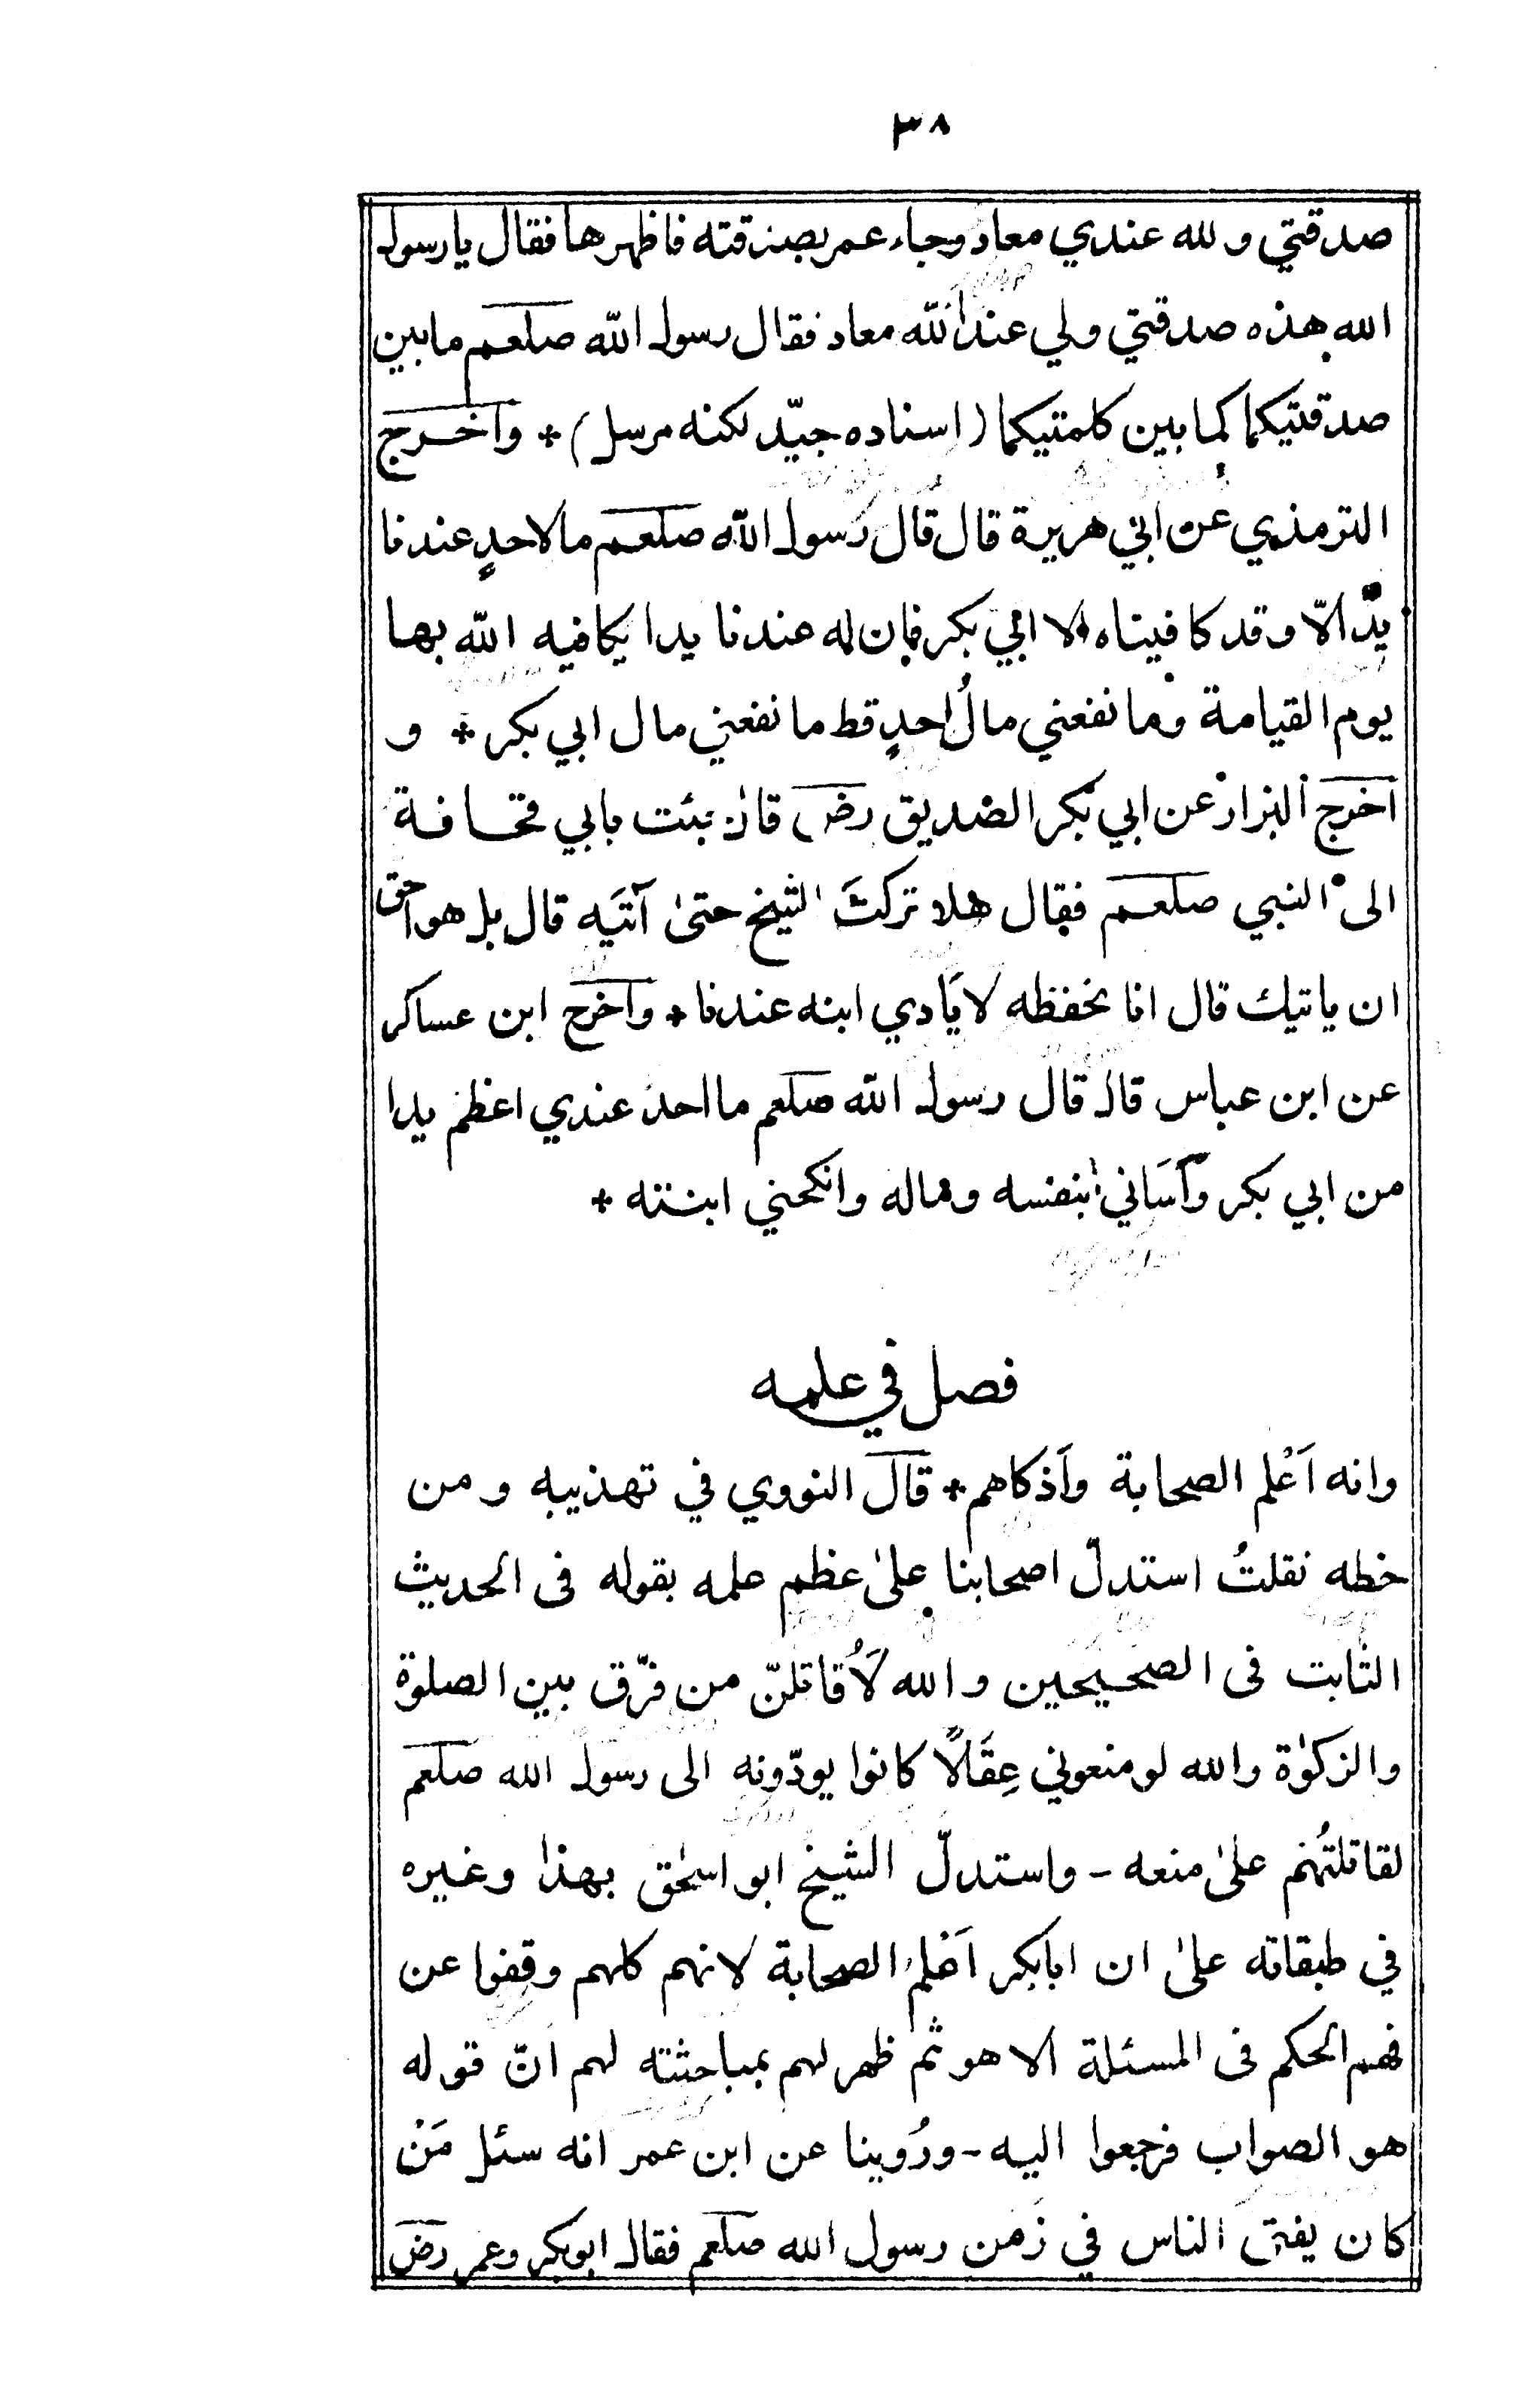 ٣٨
صدقتي ولله عندي معاد وجاء عمر بصدقته فاظهرها فقال يا رسول
الله هذه صدقتي ولي عند الله معاد فقال رسول الله صلعم ما بين
صدقتيكما كما بين كلمتيكما (اسناده جيّد لكنه مرسل) * واخرج
الترمذي عن ابي هريرة قال قال رسول الله صلعم ما لاحدٍ عندنا
يدٌ الّا وقد كافيناه الا ابي بكر فان له عندنا يدا يكافيه الله بها
يوم القيامة وما نفعني مالُ احدٍ قط ما نفعني مال ابي بكر * و
اخرج البزار عن ابي بكر الصديق رض قال جئت بابي قحافة
الى النبي صلعم فقال هلا تركتَ الشيخ حتىٰ آتيَه قال بل هو احق
ان ياتيك قال انا نحفظه لايَادي ابنه عندنا * واخرج ابن عساكر
عن ابن عباس قال قال رسول الله صلعم ما احد عندي اعظم يدا
من ابي بكر وآسَاني بنفسه وماله وانكحني ابنته *
فصل في علمه
وانه اَعْلم الصحابة واَذكاهم * قال النووي في تهذيبه ومن
خطه نقلتُ استدلّ اصحابنا علىٰ عظم علمه بقوله فى الحديث
الثابت فى الصحيحين والله لَاُقاتلنّ من فرّق بين الصلوة
والزكوٰة والله لو منعوني عِقَالًا كانوا يودّونه الى رسول الله صلعم
لقاتلتُهم علىٰ منعه - واستدلّ الشيخ ابو اسحٰق بهذا وغيره
في طبقاته علىٰ ان ابابكر اَعْلم الصحابة لانهم كلهم وقفوا عن
فهم الحكم فى المسئلة الا هو ثم ظهر لهم بمباحثته لهم انّ قوله
هو الصواب فرجعوا اليه - ورُوينا عن ابن عمر انه سئل مَنْ
كان يفتى الناس في زمن رسول الله صلعم فقال ابوبكر وعمر رض